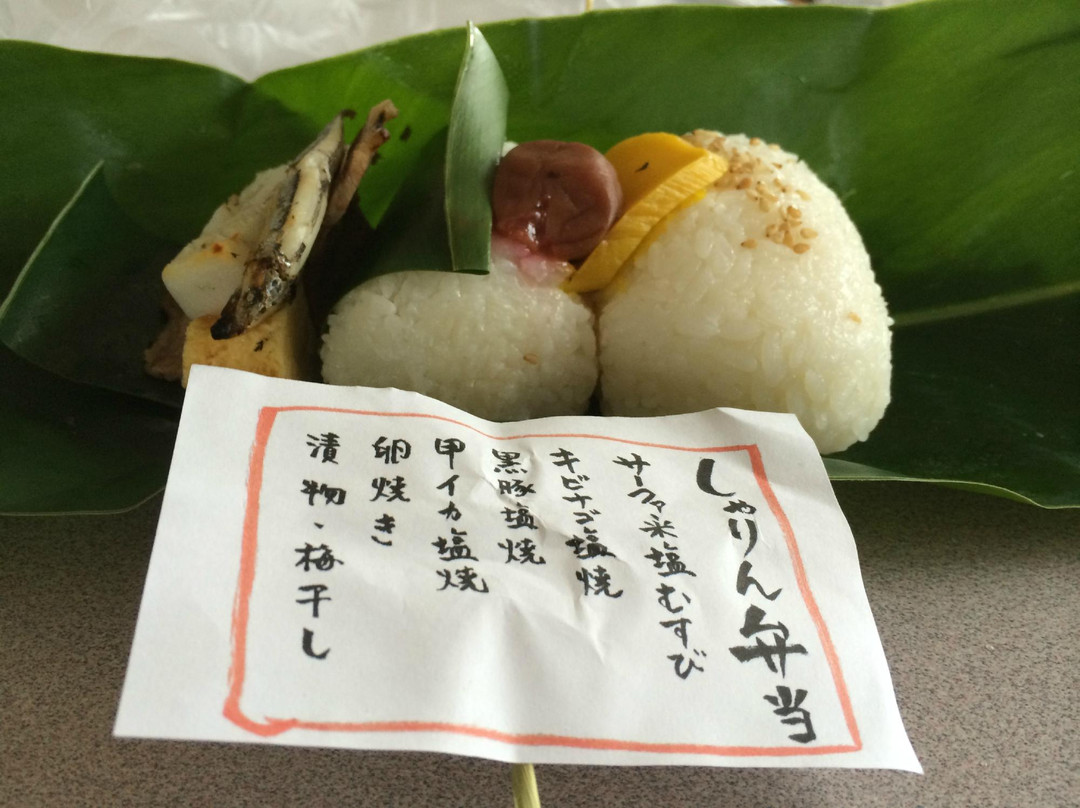 しゃりん弁当
サーファー米塩むすび
キビナゴ塩焼
黒豚塩焼
甲イカ塩焼
卵焼き
漬物、梅干し